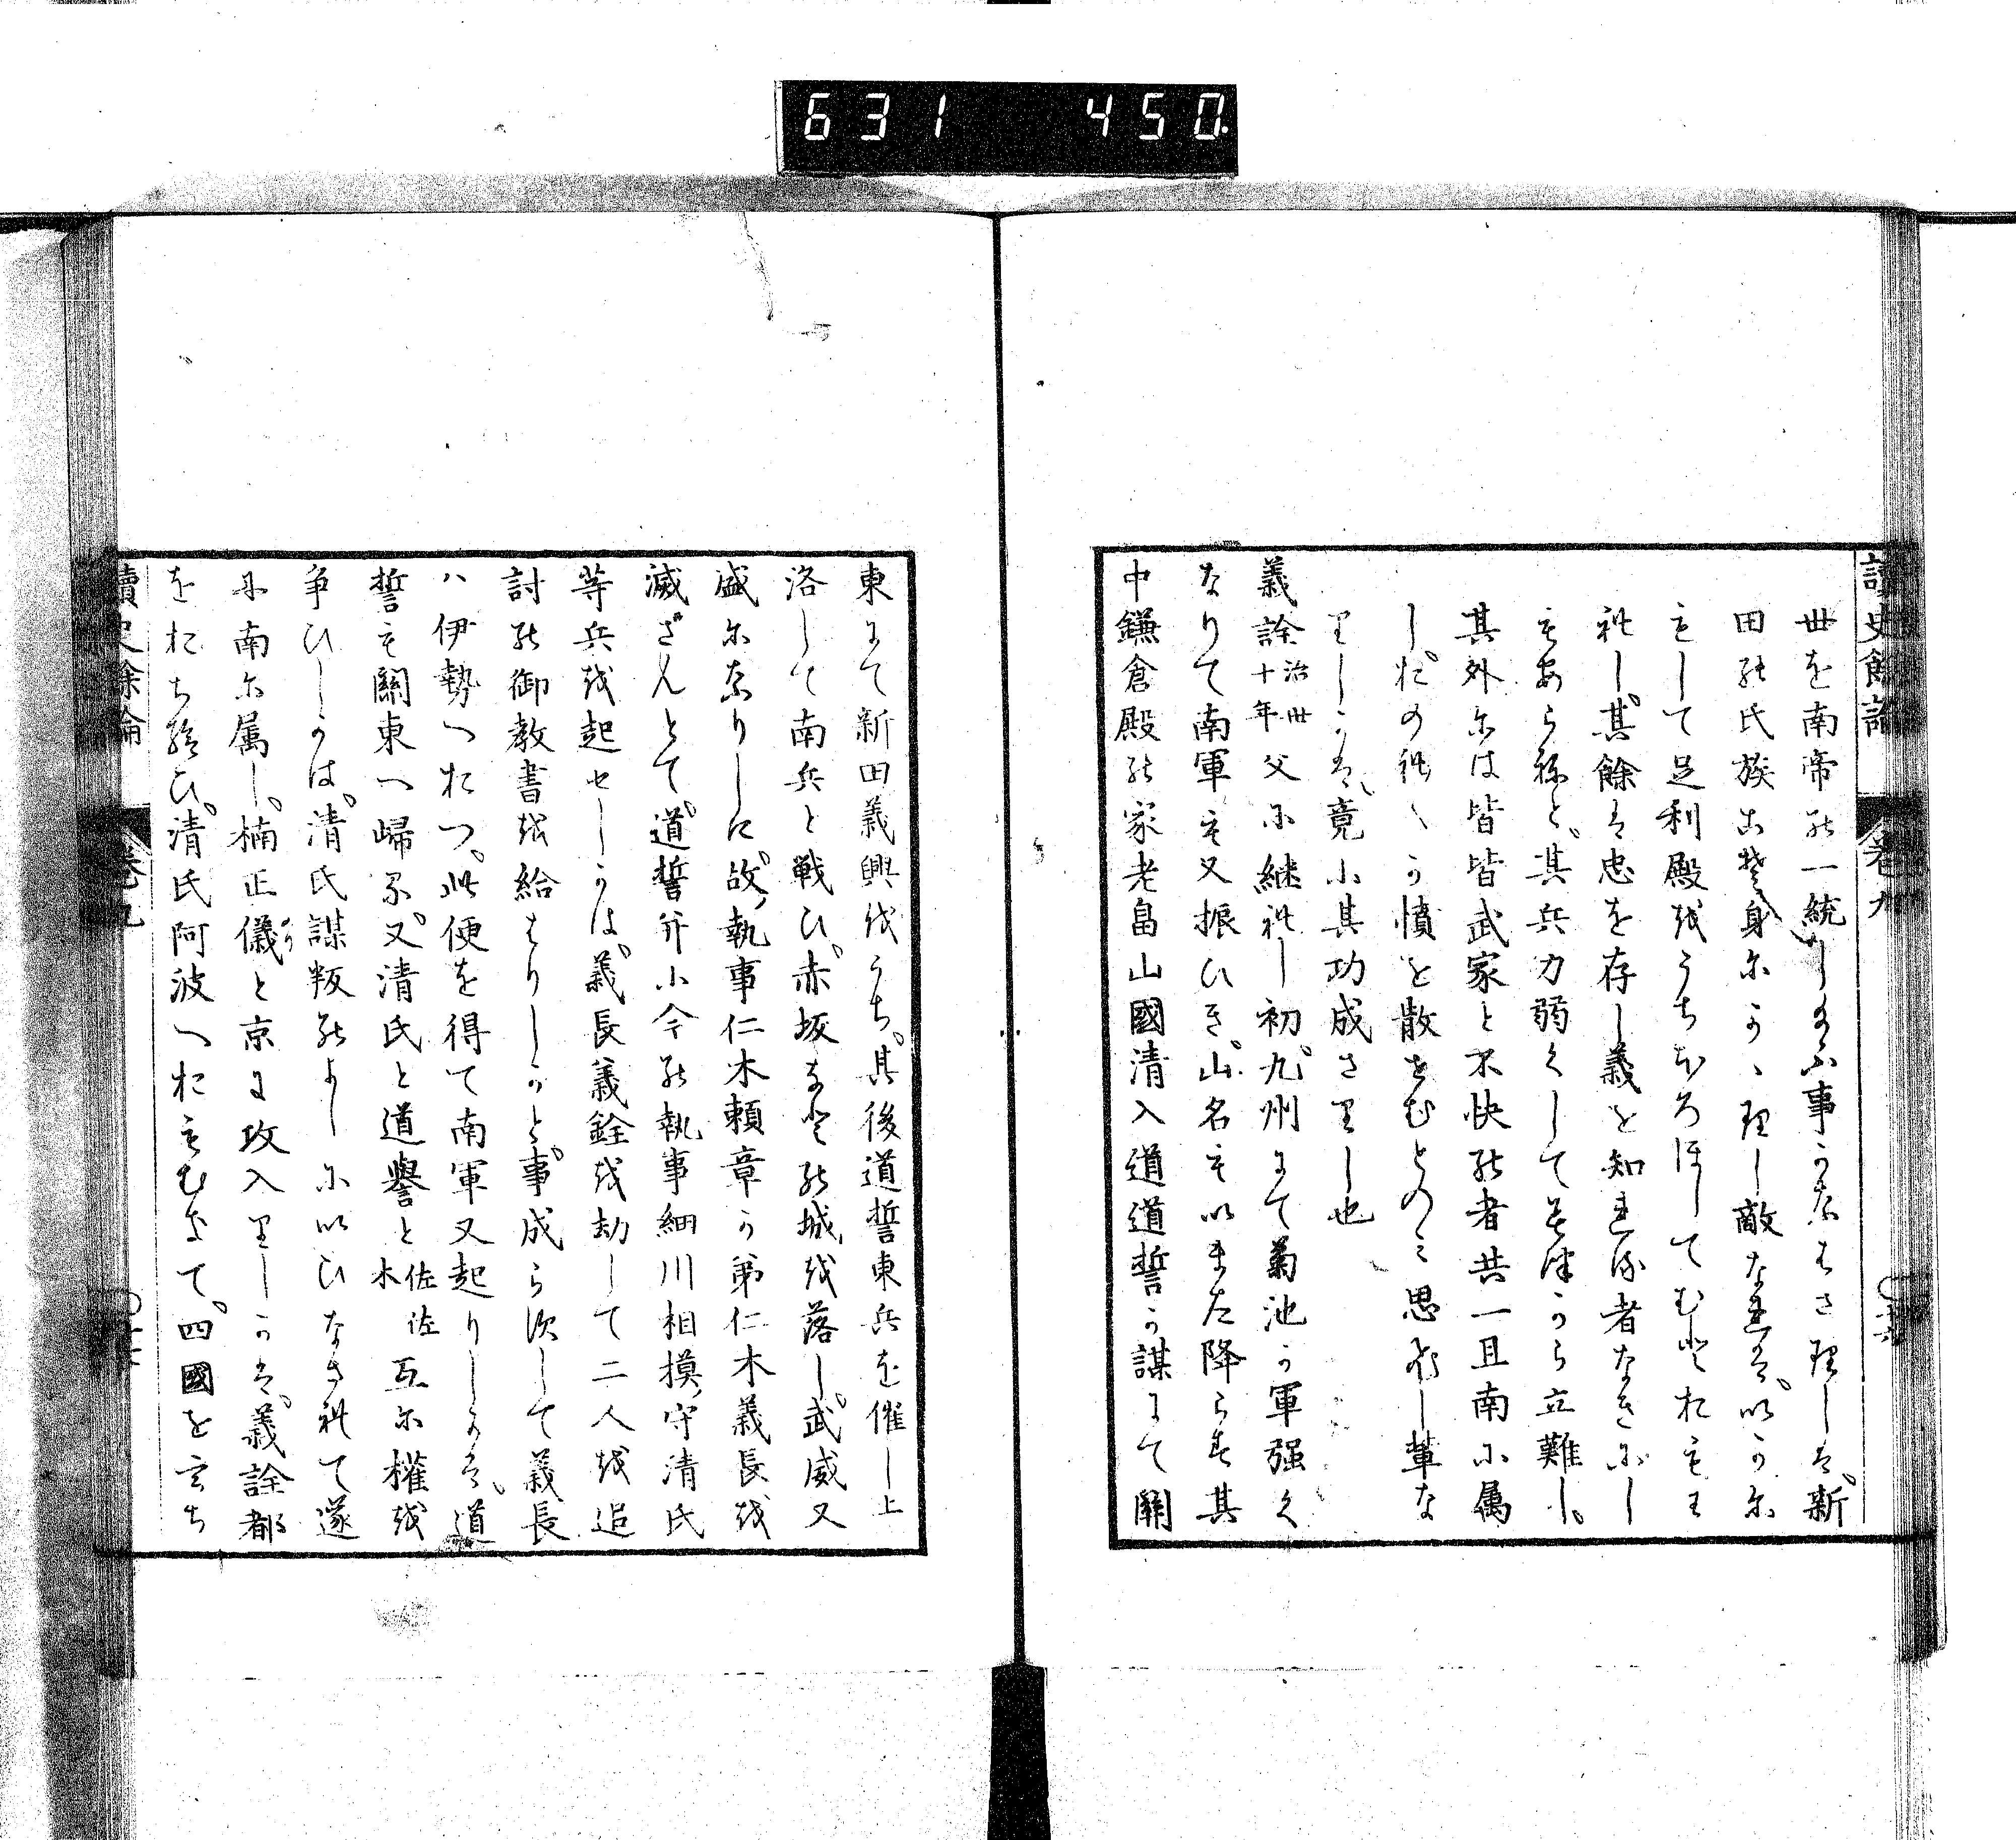 631 450
讀史餘論 卷九
世を南帝の一統し給ふ事かなはさりしは、新
田の氏族こそ身にかゝりし敵なれは、いかに
もして足利殿をうちほろほしてむとおもは
れし、其餘は忠を存し義を知れる者なきにし
もあらねと、其兵力弱くして
其外には皆皆武家と不快の者共一旦南に屬
しおのれ〳〵か憤を散せむとのみ思ひし輩な
りしかは、竟に其功成さりし也
義詮治世十年父に継れし初、九州にて菊池か軍强く
なりて南軍も又振ひき、山名もいまた降らす其
中鎌倉殿の家老畠山國清入道道誓か謀にて關
東にて新田義興をうち、其後道誓東兵を催し上
洛して南兵と戦ひ、赤坂なとの城を落し、武威又
盛になりしに、故執事仁木頼章か弟仁木義長を
滅さんとて、道誓并に今の執事細川相摸守清氏
等兵を起せしかは、義長義銓を劫して二人を追
討の御教書を給はりしかと、事成らすして義長
ハ伊勢へおつ、此便を得て南軍又起りしかは、道
誓も關東へ歸る、又清氏と道譽と佐佐木互に權を
争ひしかは、清氏謀叛のよしにいひなされて遂
に南に属し、楠正儀と京に攻入りしかは、義詮都
をおち給ひ、清氏阿波へおもむきて、四國をうち
讀史餘論 卷九